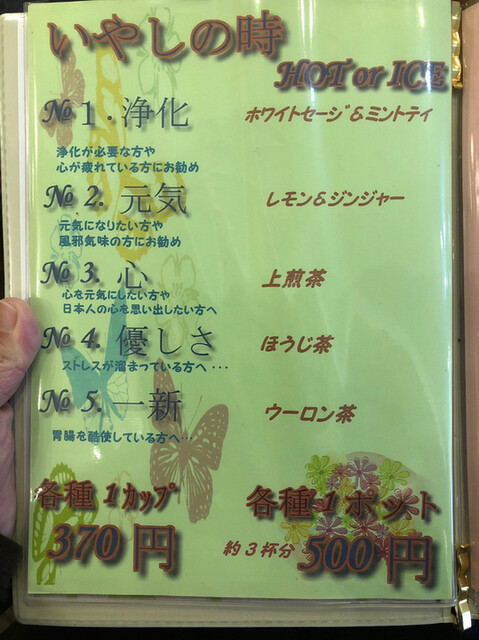 いやしの時
HOT or ICE
№ 1.浄化 ホワイトセージ&ミントティ
浄化が必要な方や
心が疲れている方にお勧め
№ 2. 元気 レモン&ジンジャー
元気になりたい方や
風邪気味の方にお勧め
№ 3. 心 上煎茶
心を元気にしたい方や
日本人の心を思い出したい方へ
№ 4. 優しさ ほうじ茶
ストレスが溜まっている方へ・・・
№ 5. 一新 ウーロン茶
胃腸を酷使している方へ…
各種1カップ 各種1ポット
370円 約3杯分 500円